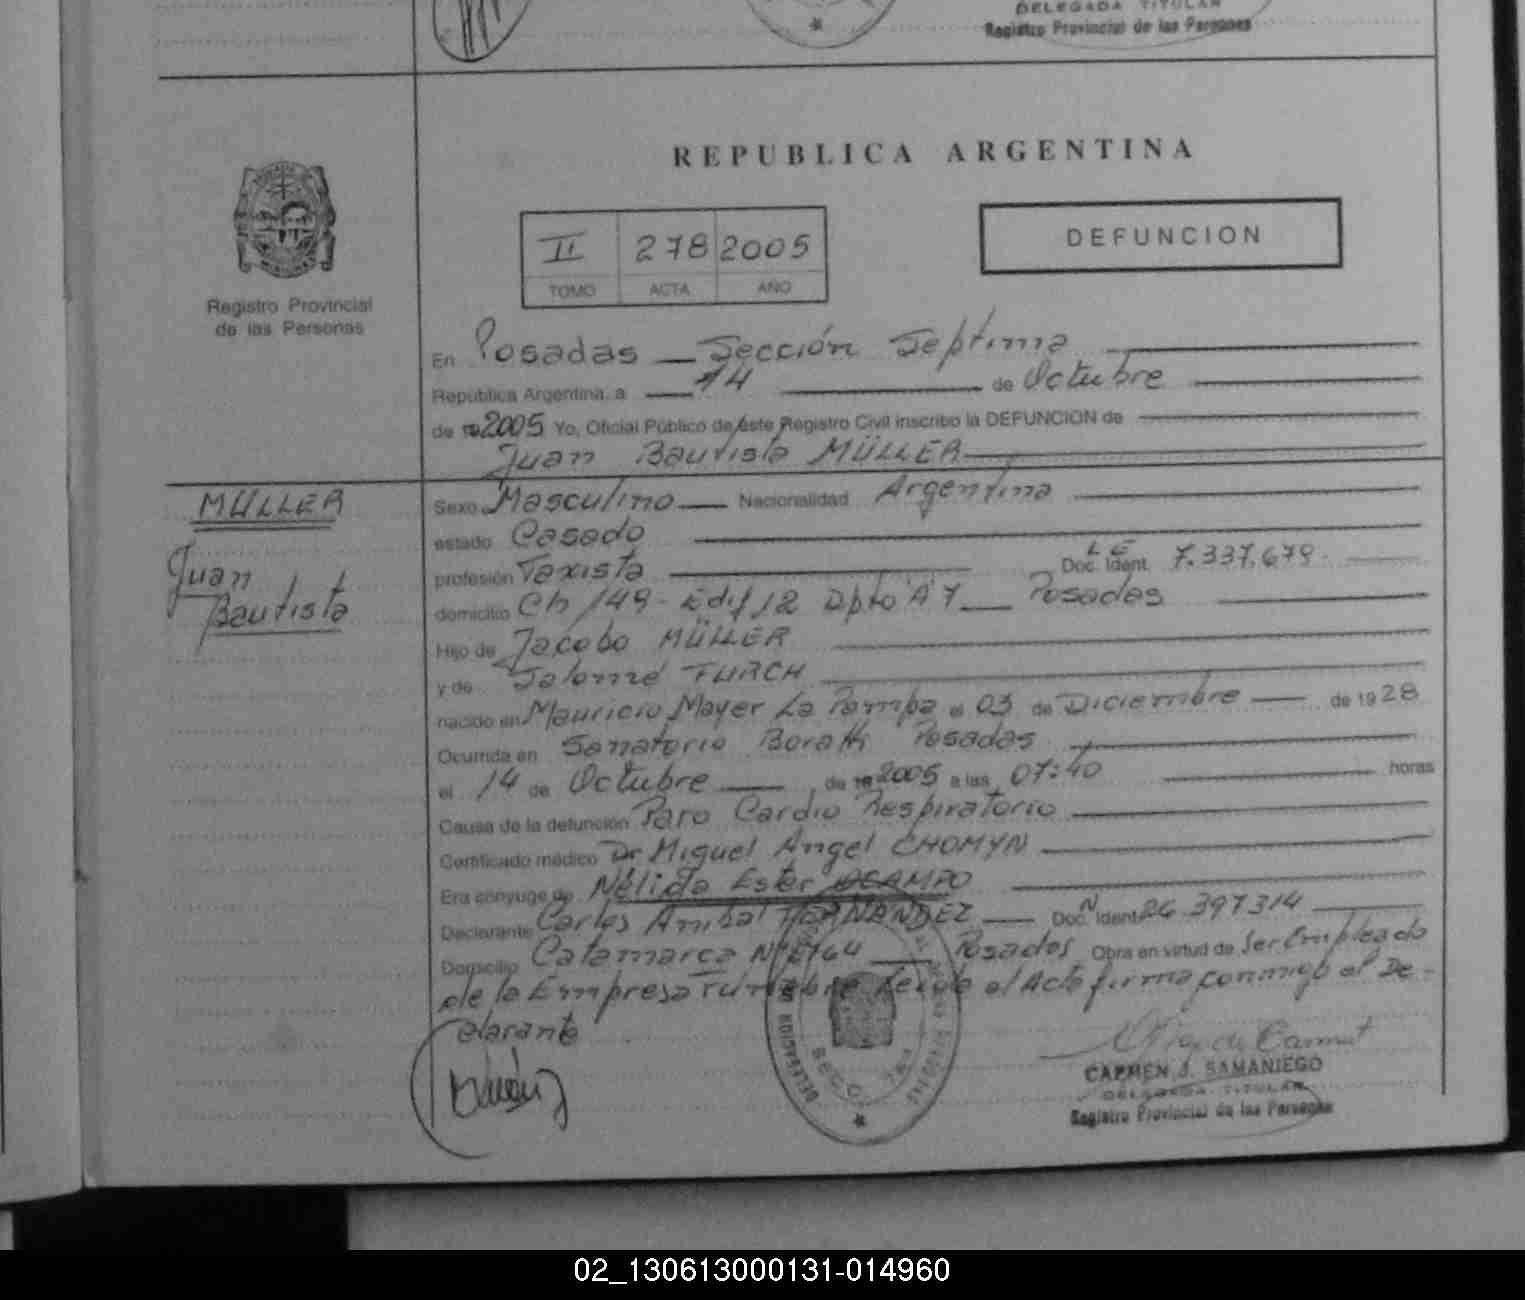 DELEGADA TITULAR
Registro Provincial de las Personas
REPUBLICA ARGENTINA
II 278 2005
TOMO ACTA AÑO
DEFUNCION
Registro Provincial
de las Personas
En Posadas Sección Septima
República Argentina, a 14 de Octubre
de 19 2005 Yo, Oficial Público de este Registro Civil inscribo la DEFUNCION de
Juan Bautista MÜLLER
MÜLLER
Juan
Bautista
Sexo Masculino Nacionalidad Argentina
estado Casado
profesión Taxista Doc. Ident. L E 7.337.679.
domicilio Ch 149 - Edif 12 Dpto "A" 7 Posadas
Hijo de Jacobo MÜLLER
y de Salomé FURCH
nacido en Mauricio Mayer La Pampa el 03 de Diciembre de 1928
Ocurrida en Sanatorio Boratti Posadas
el 14 de Octubre de 19 2005 a las 07:40 horas
Causa de la defunción Paro Cardio Respiratorio
Certificado médico Dr Miguel Angel CHOMYN
Era cónyuge de Nélida Ester OCAMPO
Declarante Carlos Anibal HERNANDEZ Doc. N Ident. 26.397.314
Domicilio Catamarca Nº 2164 Posadas Obra en virtud de Ser Empleado
de la Empresa Funebre Leida el Acta firma conmigo el De-
clarante
CARMEN J. SAMANIEGO
DELEGADA TITULAR
Registro Provincial de las Personas
02_130613000131-014960